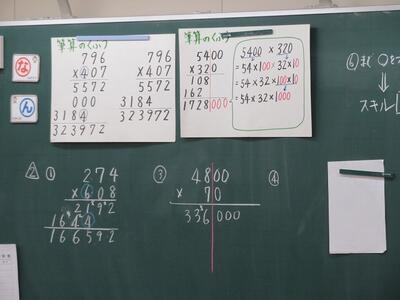 筆算のくふう
796
×407
5572
000
3184
323972
796
×407
5572
3184
323972
筆算のくふう
5400
×320
108
162
1728000
5400 × 320
=54×100×32×10
=54×32×100×10
=54×32×1000
な
ん
⑥
スキル
△2 ①
274
×608
2192
1644
166592
③
4800
× 70
336000
④